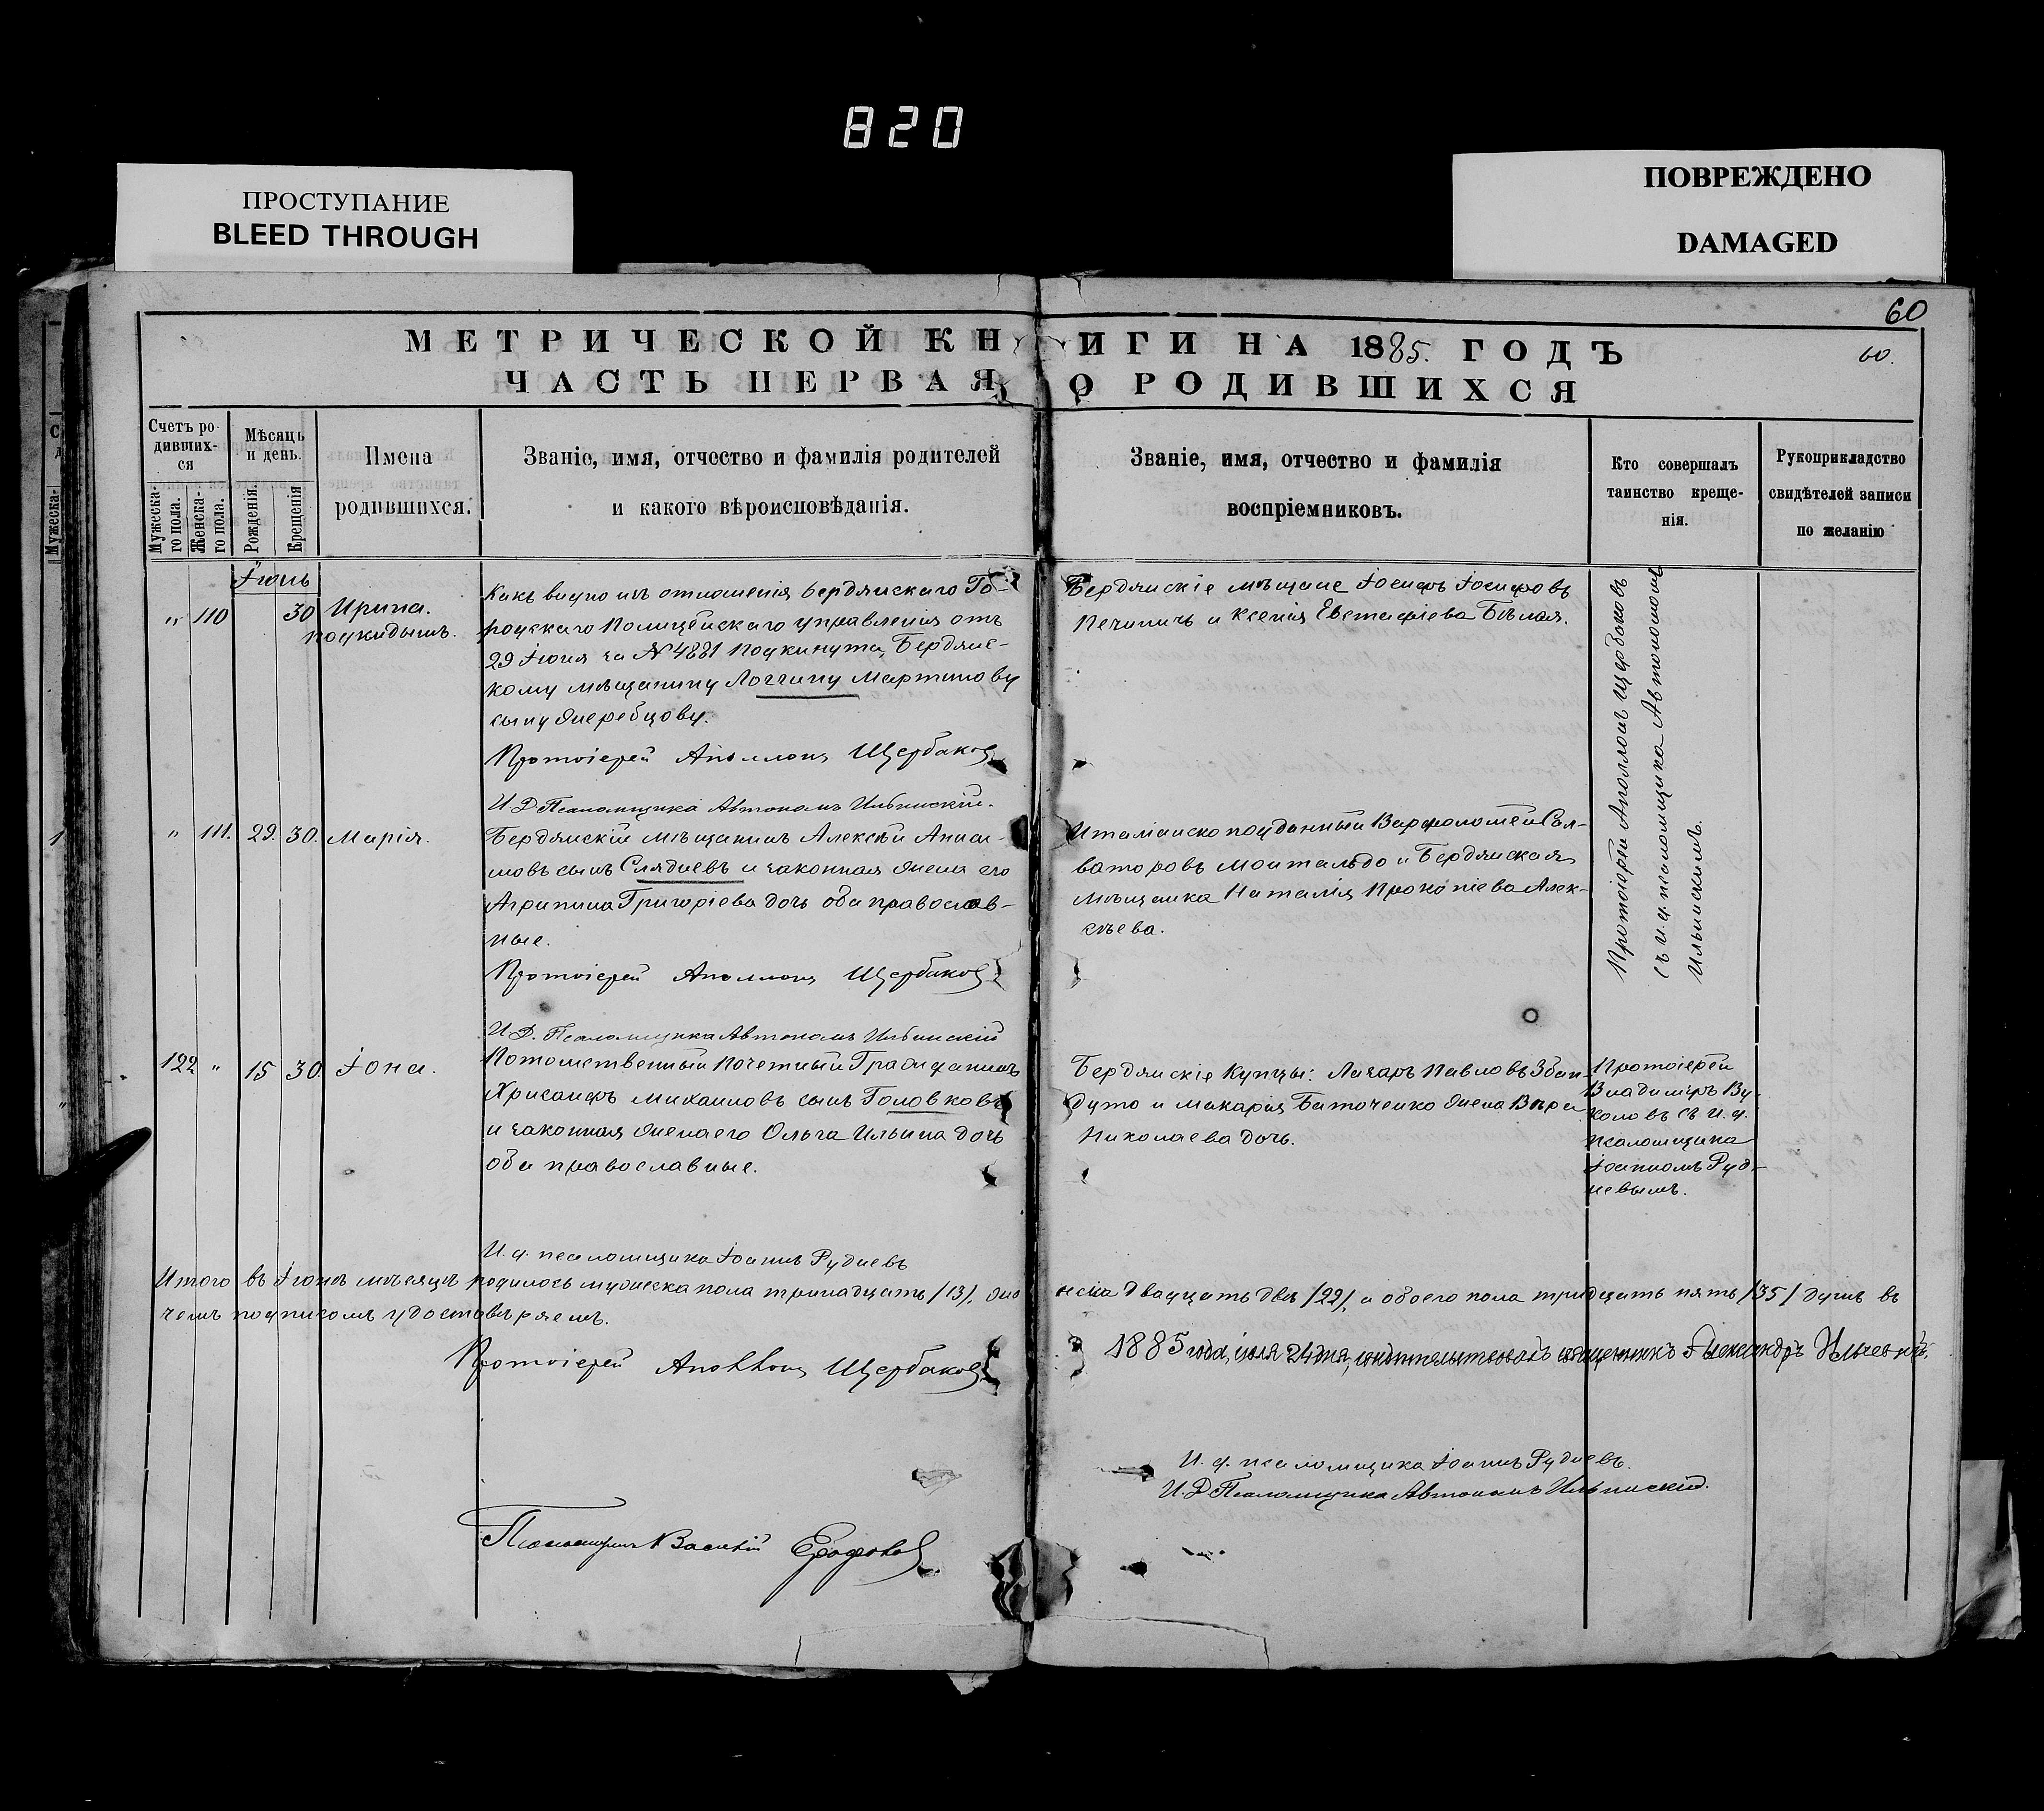 820
ПРОСТУПАНИЕ
BLEED THROUGH
ПОВРЕЖДЕНО
DAMAGED
60
60.
МЕТРИЧЕСКОЙ КНИГИ НА 1885. ГОДЪ
ЧАСТЬ ПЕРВАЯ О РОДИВШИХСЯ
Счетъ ро-
дивших-
ся
Мужеска-
го пола.
Женска-
го пола.
Мѣсяць
и день.
Рожденія.
Крещенія
Имена
родившихся.
Званіе, имя, отчество и фамилія родителей
и какого вѣроисповѣданія.
Званіе, имя, отчество и фамилія
воспріемниковъ.
Кто совершалъ
таинство креще-
нія.
Рукоприкладство
свидѣтелей записи
по желанію
Мужеска-
Іюнь
" 110 30 Ирина.
подкидышъ.
Какъ видно изъ отношенія Бердянскаго Го-
родскаго Полицейскаго управленія отъ
29 Іюня за № 4881 подкинута, Бердянс-
кому мѣщанину Логгину Мартинову
сыну Жеребцову.
Протоіерей Аполлонъ Щербаковъ
И. Д. Псаломщика Автономъ Ильинскій.
Бердянскіе мѣщане Іосифъ Іосифовъ
Печиничъ и Ксенія Евстафіева Бѣлая.
Протоіерей Аполлонъ Щербаковъ
съ и. д. псаломщика Автономомъ
Ильинскимъ.
" 111. 29. 30. Марія.
Бердянскій мѣщанинъ Алексѣй Аниси-
мовъ сынъ Слядневъ и законная жена его
Агрипина Григоріева дочь оба православ-
ные.
Протоіерей Аполлонъ Щербаковъ
И. Д. Псаломщика Автономъ Ильинскій
Италіанско подданный Варфоломей Сал-
ваторовъ Монтальдо и Бердянская
мѣщанка Наталія Прокопіева Алек-
сѣева.
122 " 15 30. Іона.
Потомственный Почетный Гражданинъ
Хрисанфъ Михаиловъ сынъ Головковъ
и законная жена его Ольга Ильина дочь
оба православные.
И. д. псаломщика Іоаннъ Рудневъ
Бердянскіе Купцы: Лазарь Павловъ Збан-
дуто и Макарія Баточенко жена Вѣра
Николаева дочь.
Протоіерей
Владиміръ Ву-
коловъ съ и. д.
псаломщика
Іоанномъ Руд-
невымъ.
Итого въ Іюнѣ мѣсяцѣ родилось мужеска пола тринадцать /13/, женска двадцать два /22/, а обоего пола тридцать пять /35/ душъ въ
чемъ подписомъ удостовѣряемъ.
Протоіерей Аполлонъ Щербаковъ
1885 года, іюля 24 дня, свидѣтельствовалъ священникъ Александръ
И. д. псаломщика Іоаннъ Рудневъ.
И. Д. Псаломщика Автономъ Ильинскій.
Псаломщикъ Василій